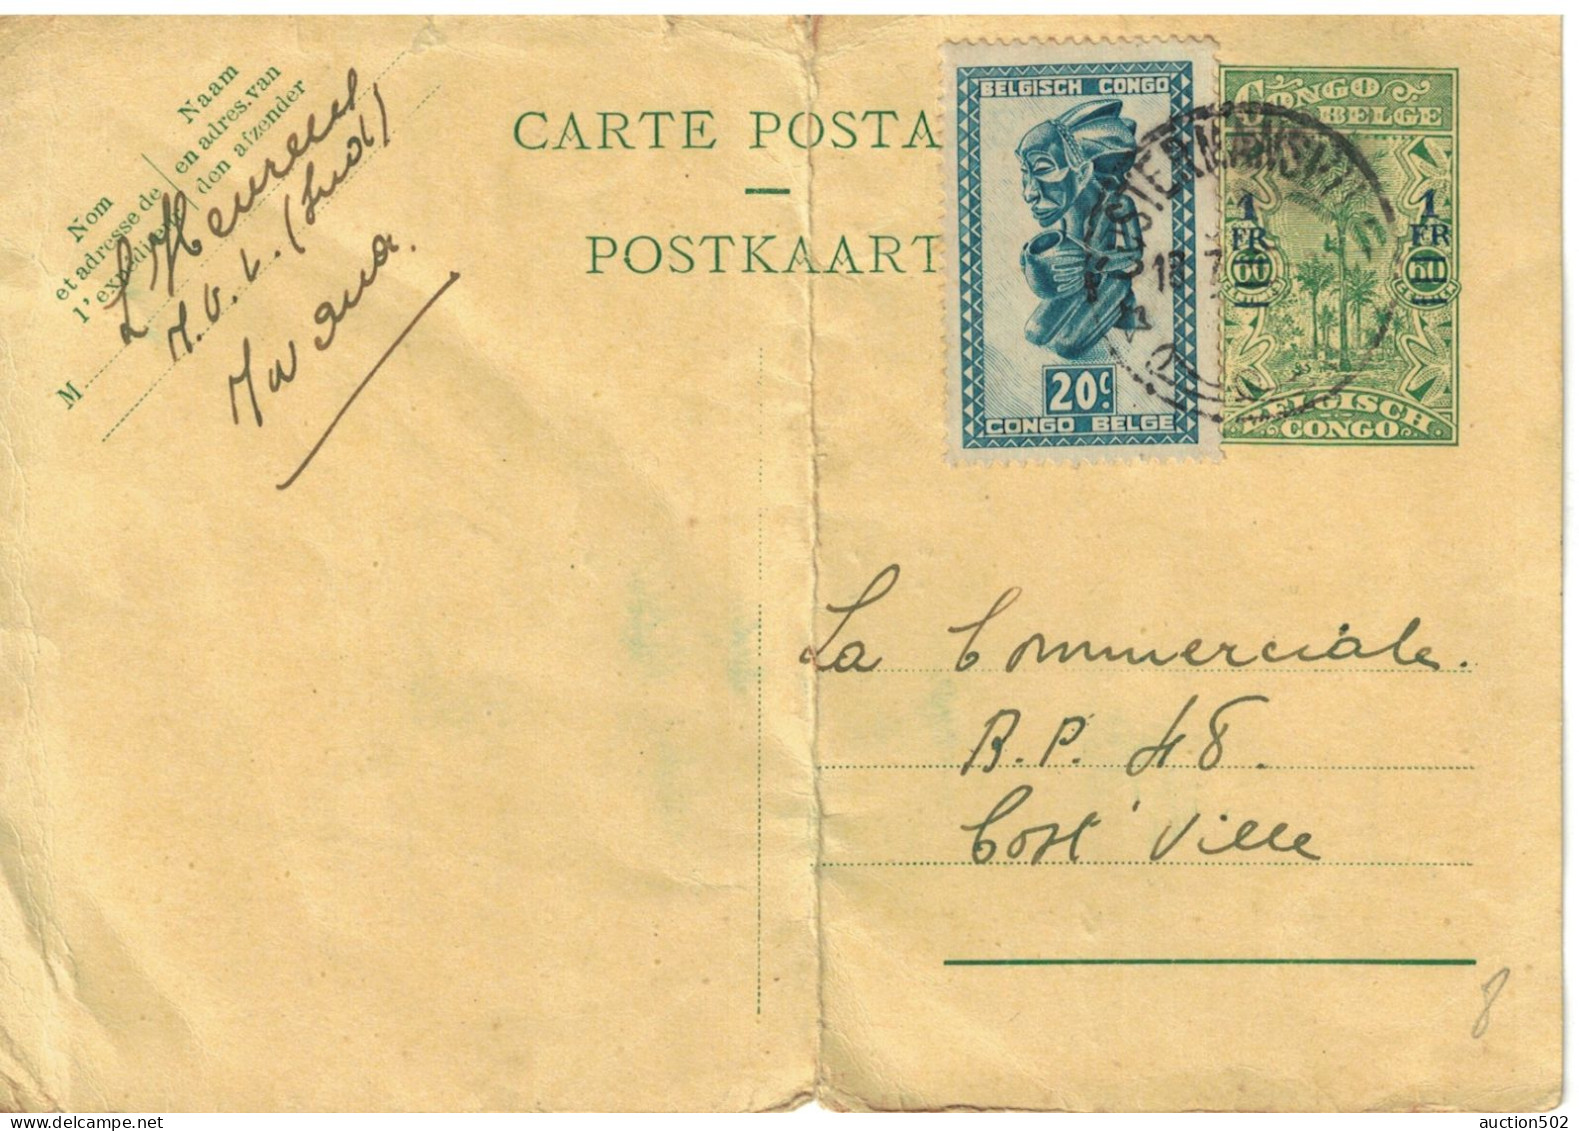 Nom
et adresse de
l'expéditeur
Naam
en adres van
den afzender
M
CARTE POSTA
POSTKAART
BELGISCH CONGO
20c.
CONGO BELGE
CONGO
BELGE
1
FR
60
1
FR
60
BELGISCH
CONGO
COSTERMANSVILLE
18
La Commerciale.
B.P. 48.
Cost'Ville
8
auction502